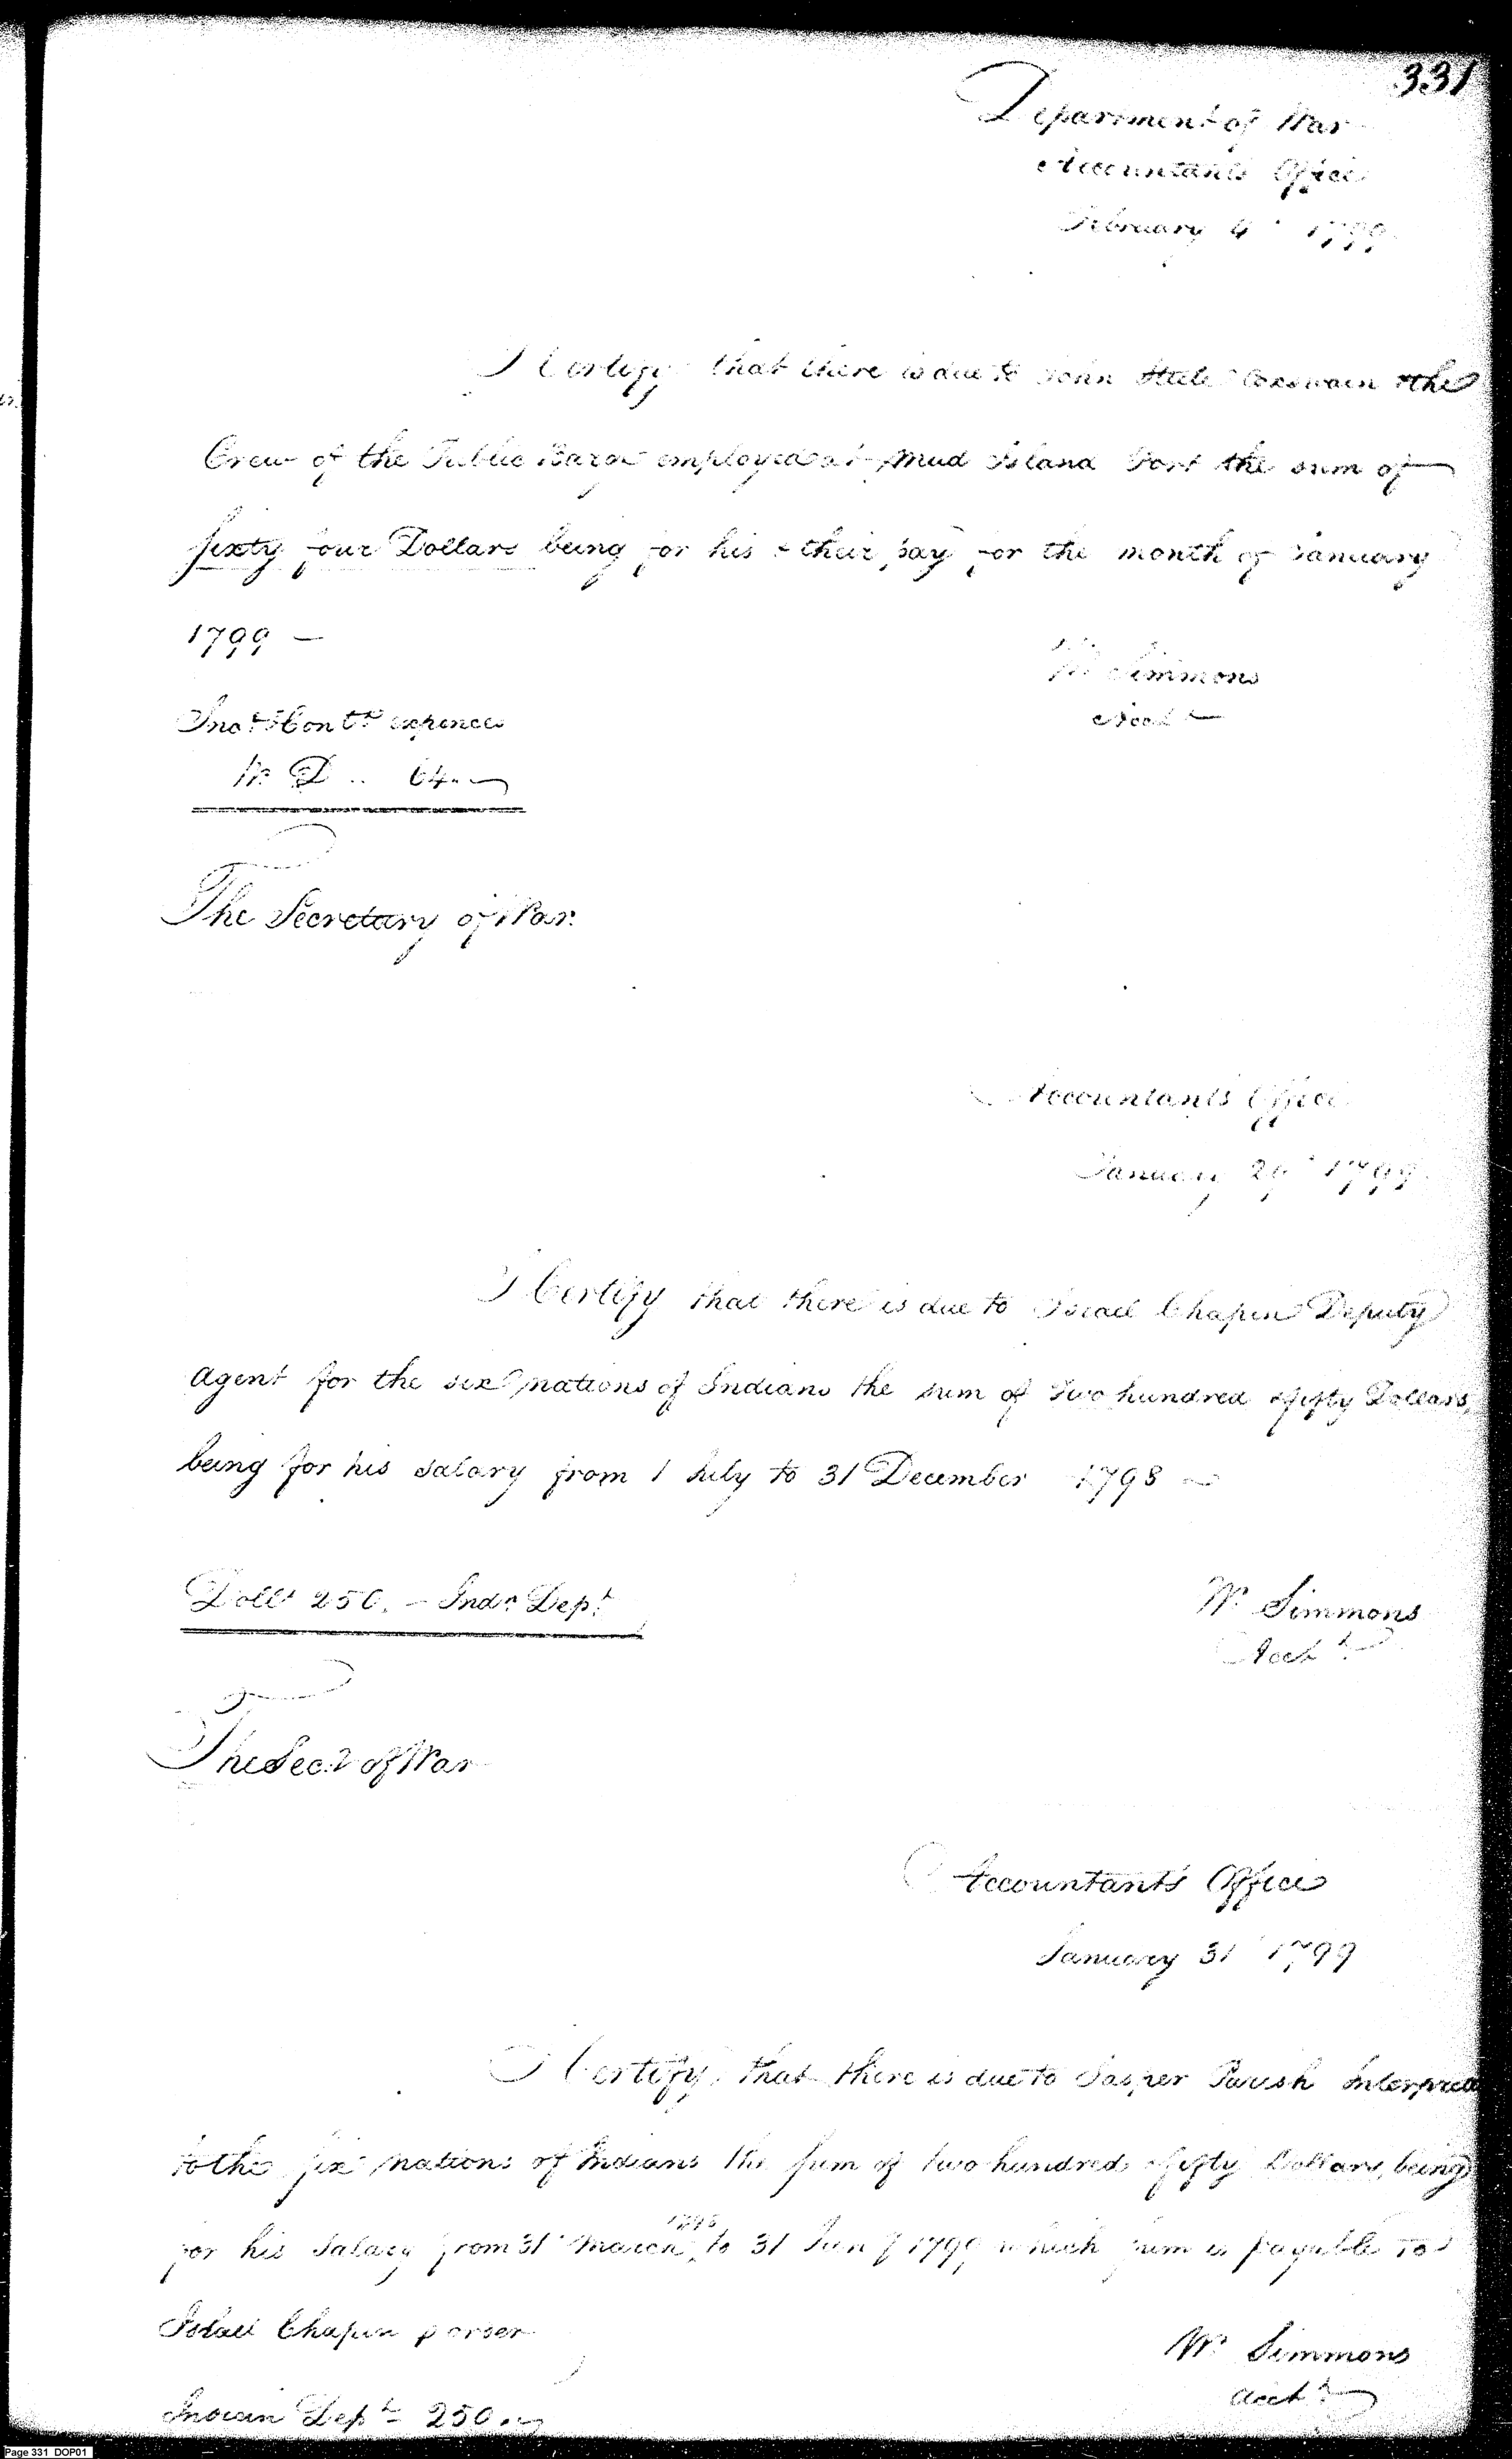 331
Department of War
Accountants Office
February 4th 1799
I Certify that there is due to John Steele Coxswain & the
Crew of the Public Barge employed at Mud Island Fort the sum of
sixty four Dollars being for his & their pay for the month of January
1799 —
Wm Simmons
Acct
& Contt expences
W. D .. 64..
The Secretary of War.
Accountants Office
January 29th 1799
I Certify that there is due to Israel Chapin Deputy
Agent for the six nations of Indians the sum of two hundred & fifty Dollars,
being for his salary from 1 July to 31 December 1798 —
Dolls 250. — Indn Dept
Wm Simmons
Acct
The Secy of War
Accountants Office
January 31st 1799
I Certify that there is due to Jasper Parish Interpreter
to the six nations of Indians the sum of two hundred & fifty Dollars, being
for his salary from 31st March 1798 to 31 Jany 1799 which sum is payable to
Israel Chapin p order
Wm Simmons
Acct
Indian Dept 250..
Page 331 DOP01